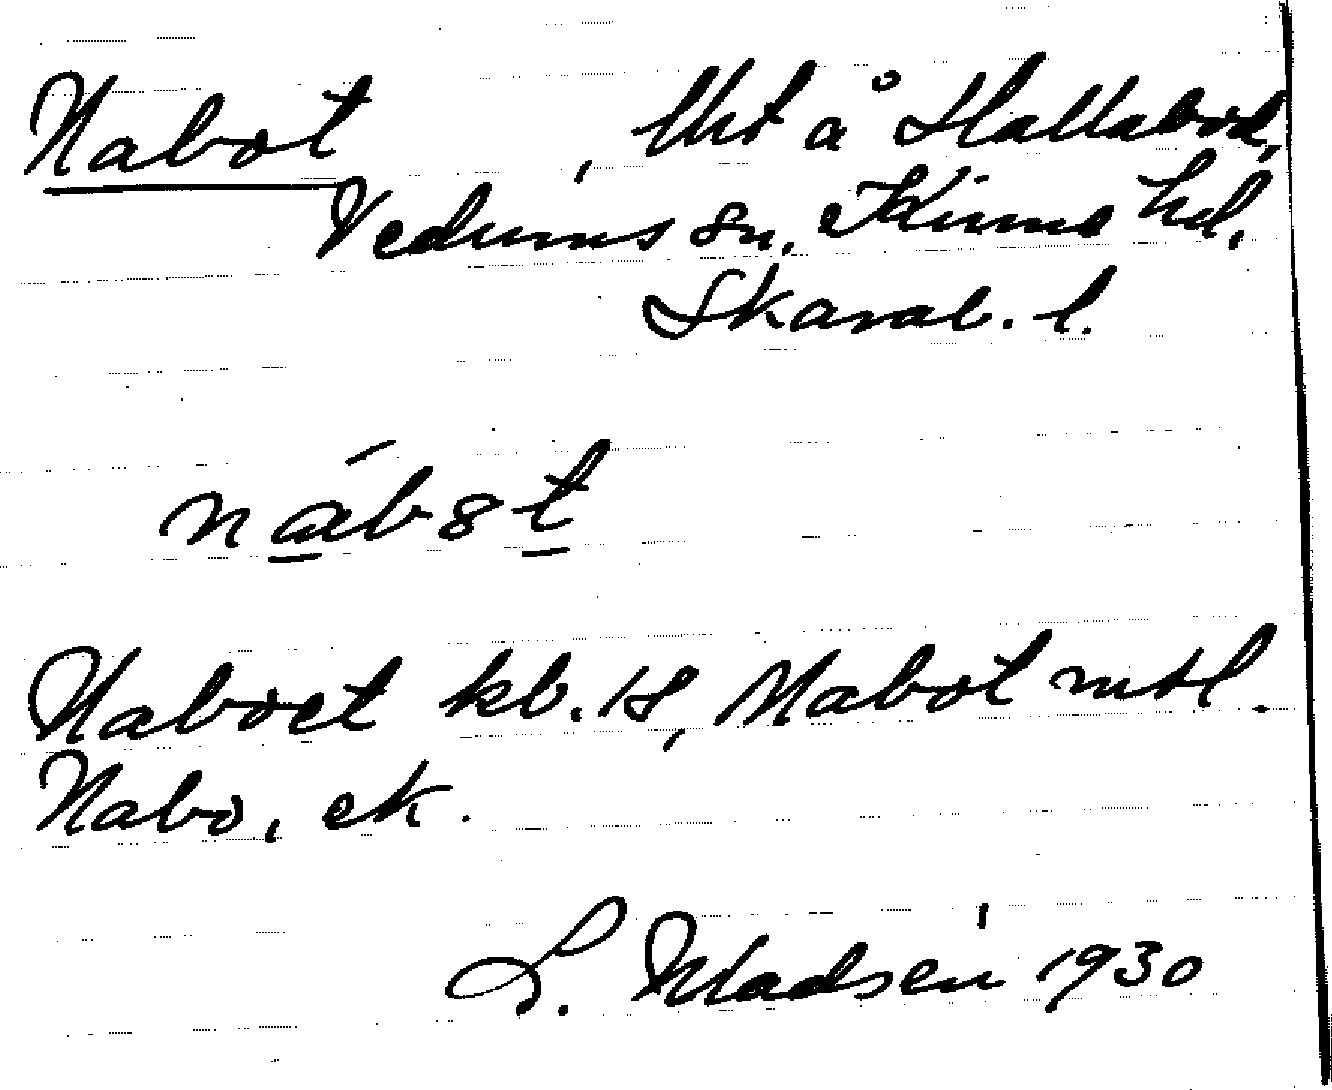 Nabot , lht å Hallabod,
Vedums sn, Kinne hd,
Skarab. l.
nábɞt
Naboet kb. 18, Nabot mtl.
Nabo, ek.
L. Madsén 1930